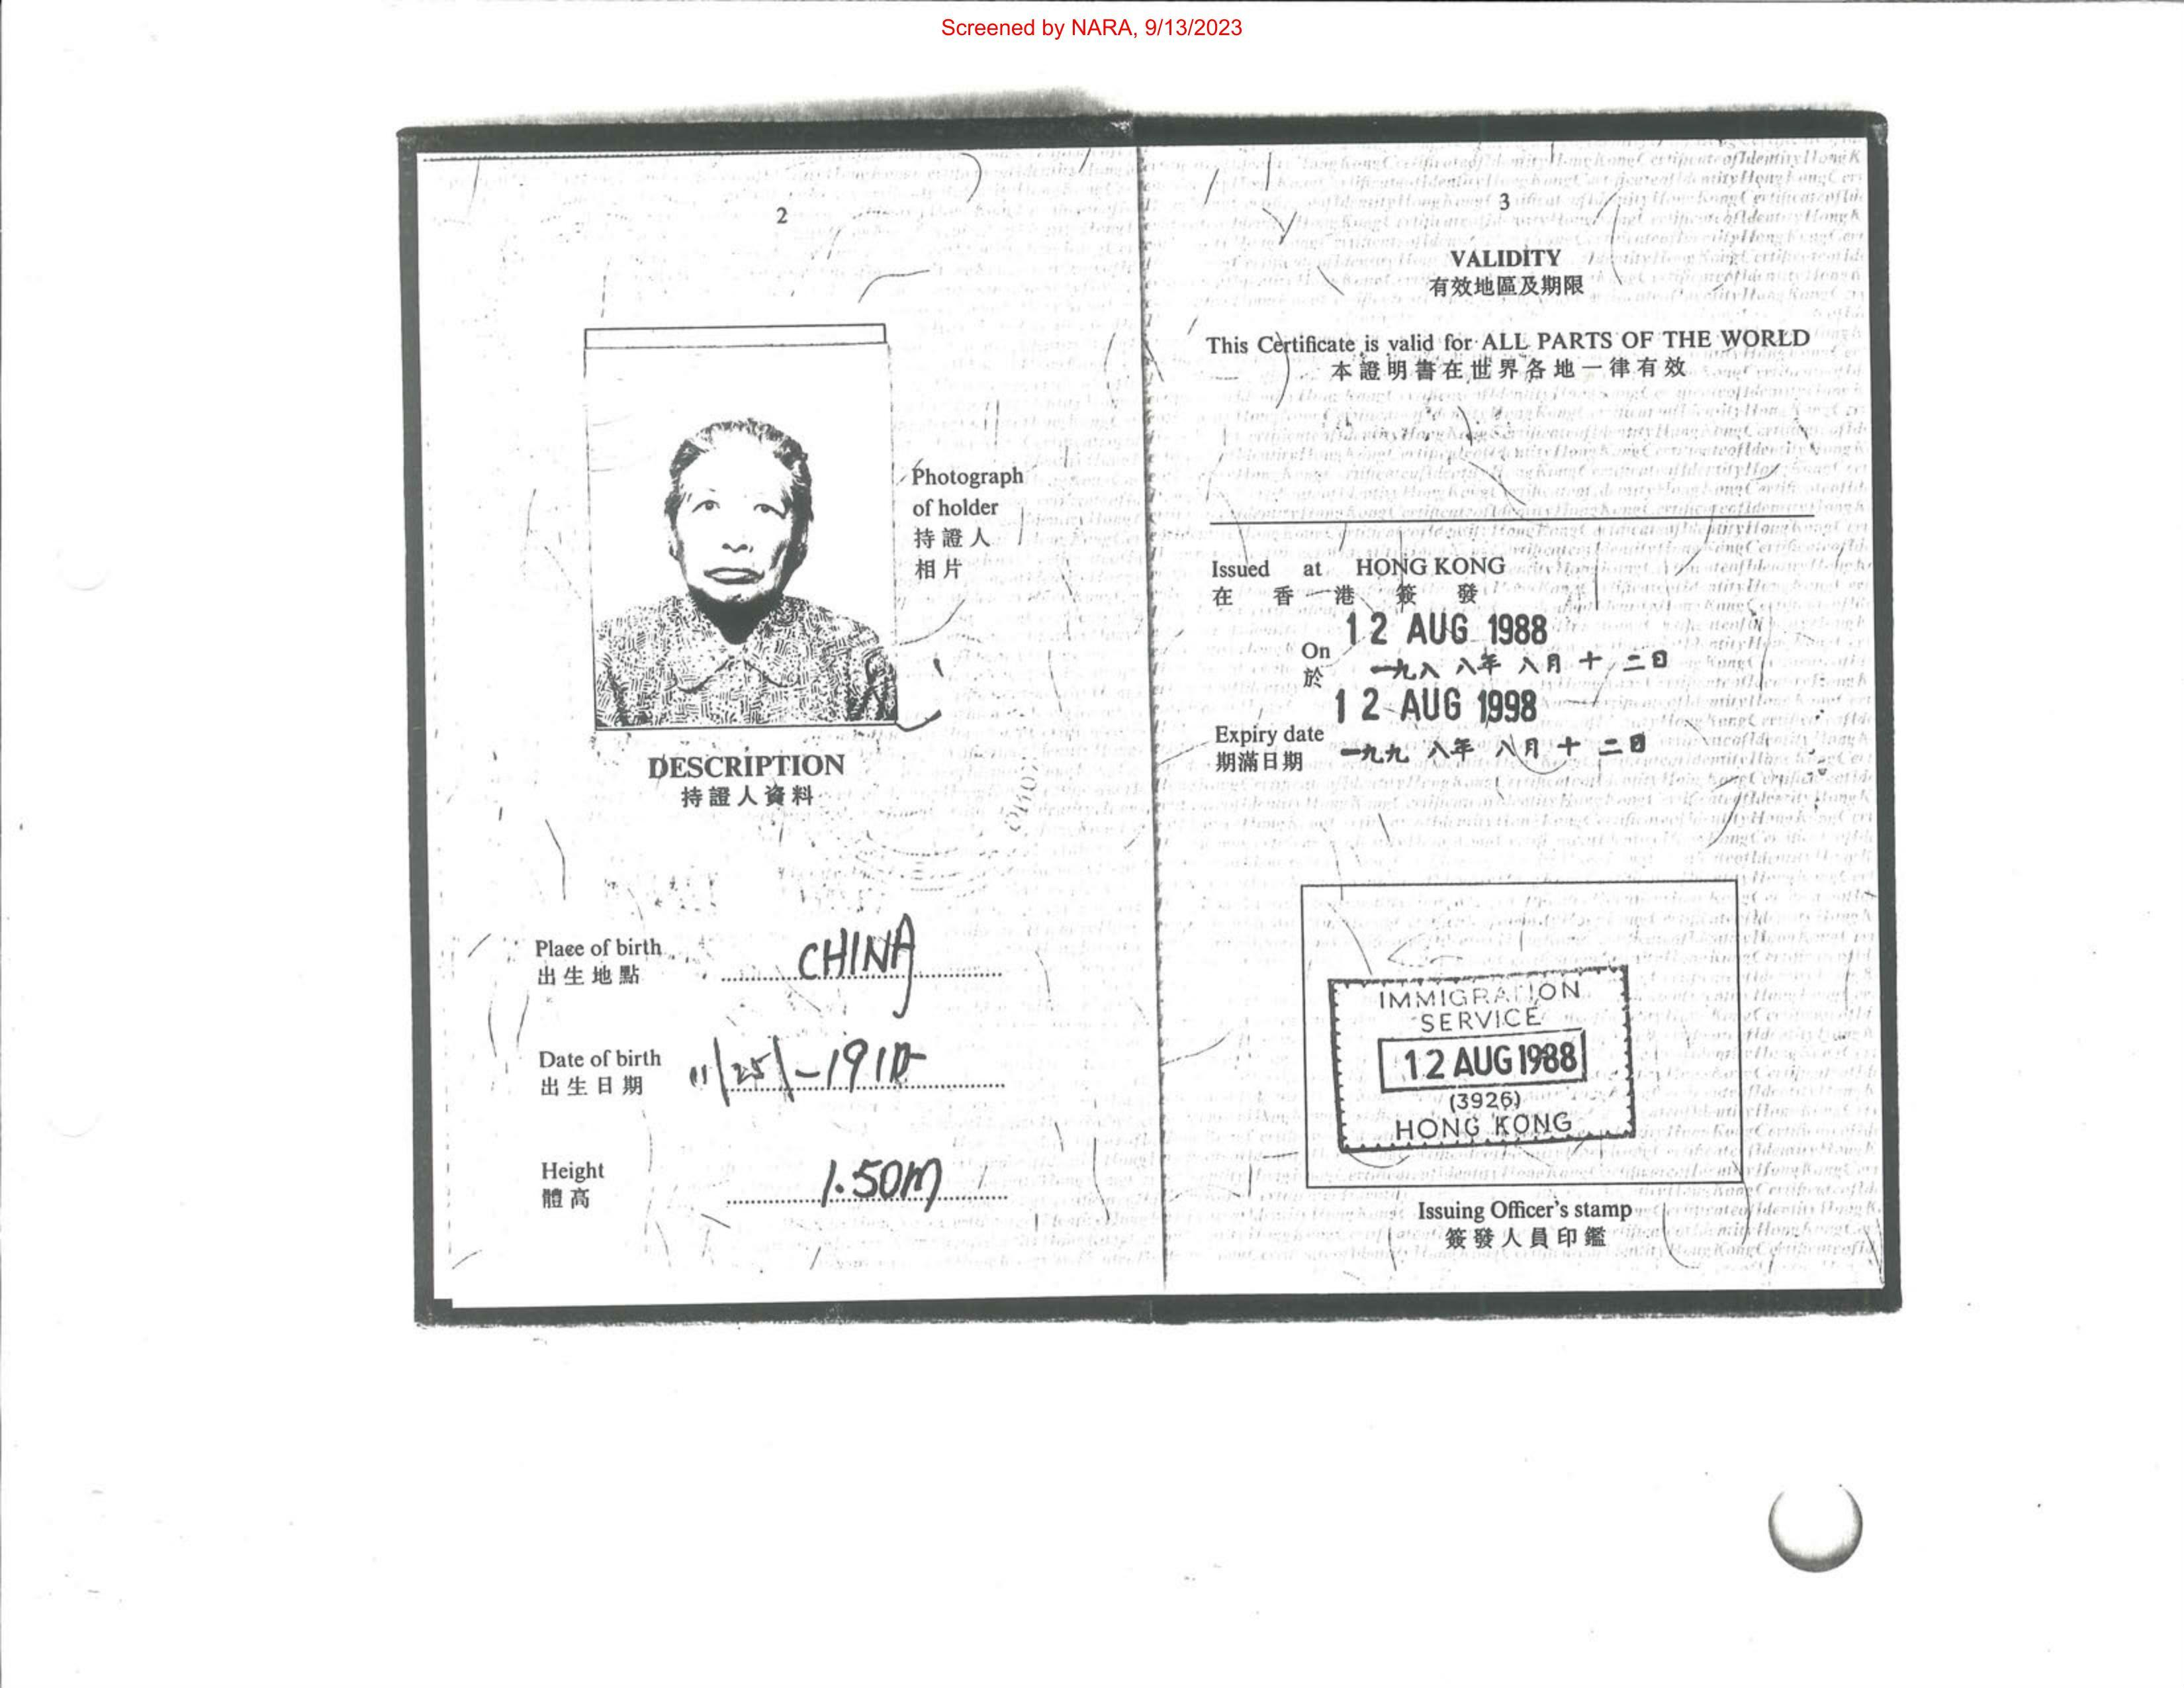 Screened by NARA, 9/13/2023
2
Photograph
of holder
持證人
相片
DESCRIPTION
持證人資料
Place of birth CHINA
出生地點
Date of birth
出生日期
Height 1.50m
體高
3
VALIDITY
有效地區及期限
This Certificate is valid for ALL PARTS OF THE WORLD
本證明書在世界各地一律有效
Issued at HONG KONG
在香港簽發
12 AUG 1988
On
於 一九八八年八月十二日
12 AUG 1998
Expiry date
期滿日期 一九九八年八月十二日
IMMIGRATION
SERVICE
12 AUG 1988
(3926)
HONG KONG
Issuing Officer's stamp
簽發人員印鑑